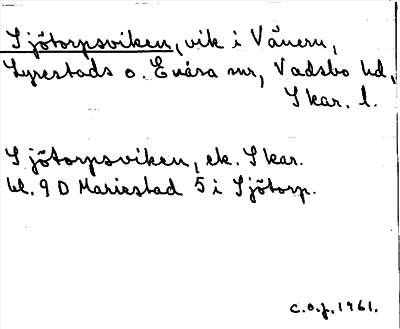 Sjötorpsviken, vik i Vänern,
Lyrestads o. Enåsa snr, Vadsbo hd,
Skar. l.
Sjötorpsviken, ek. Skar.
bl. 9 D Mariestad 5 i Sjötorp.
c.o.f. 1961.